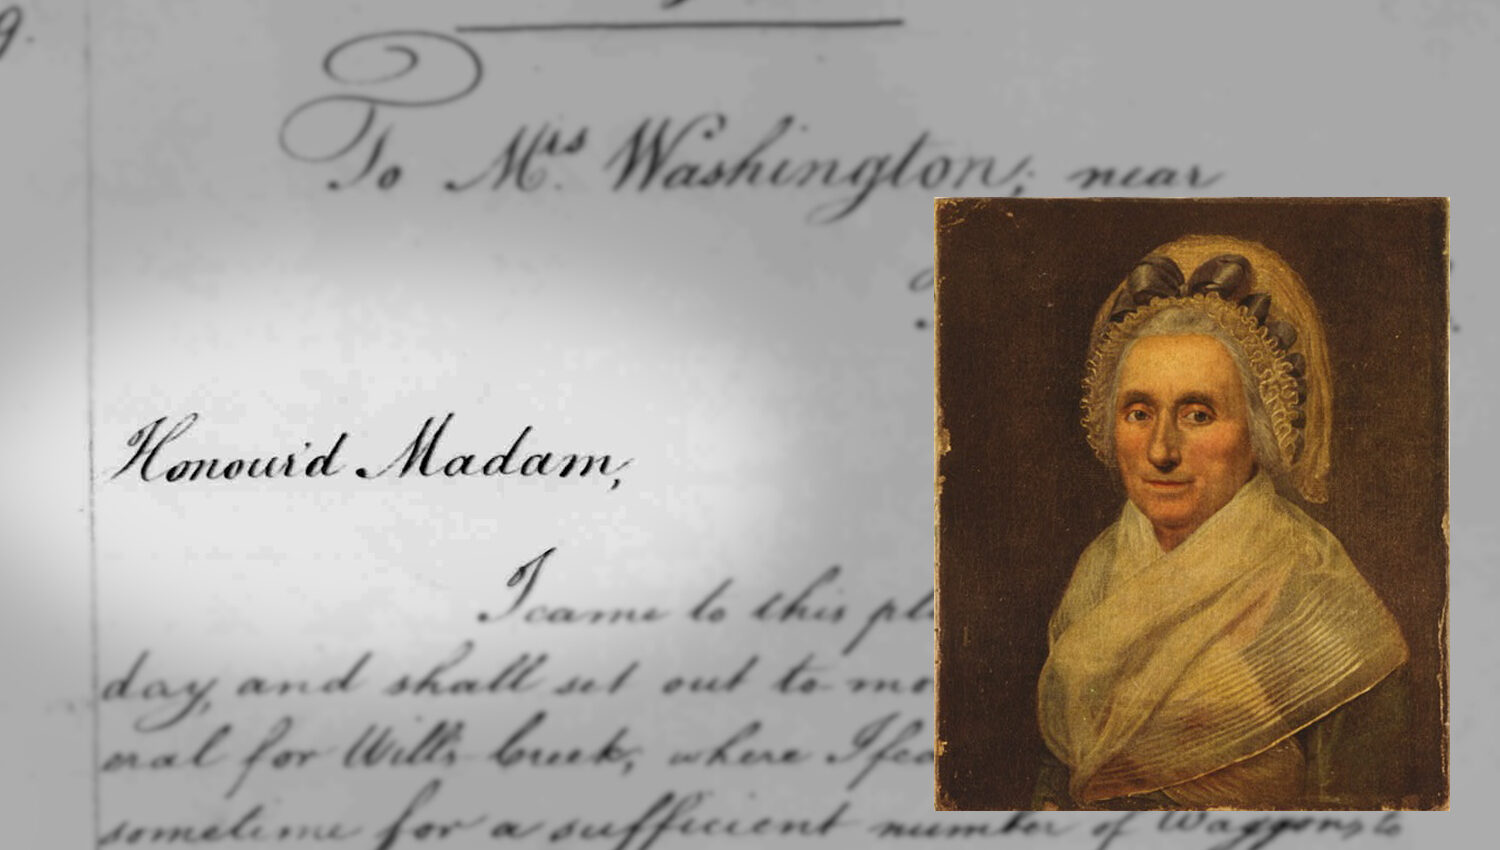 9.
To Mrs Washington; near
Honour'd Madam,
I came to this
day, and shall set out to
eral for Will's Creek, where I
sometime for a sufficient number of Waggons to